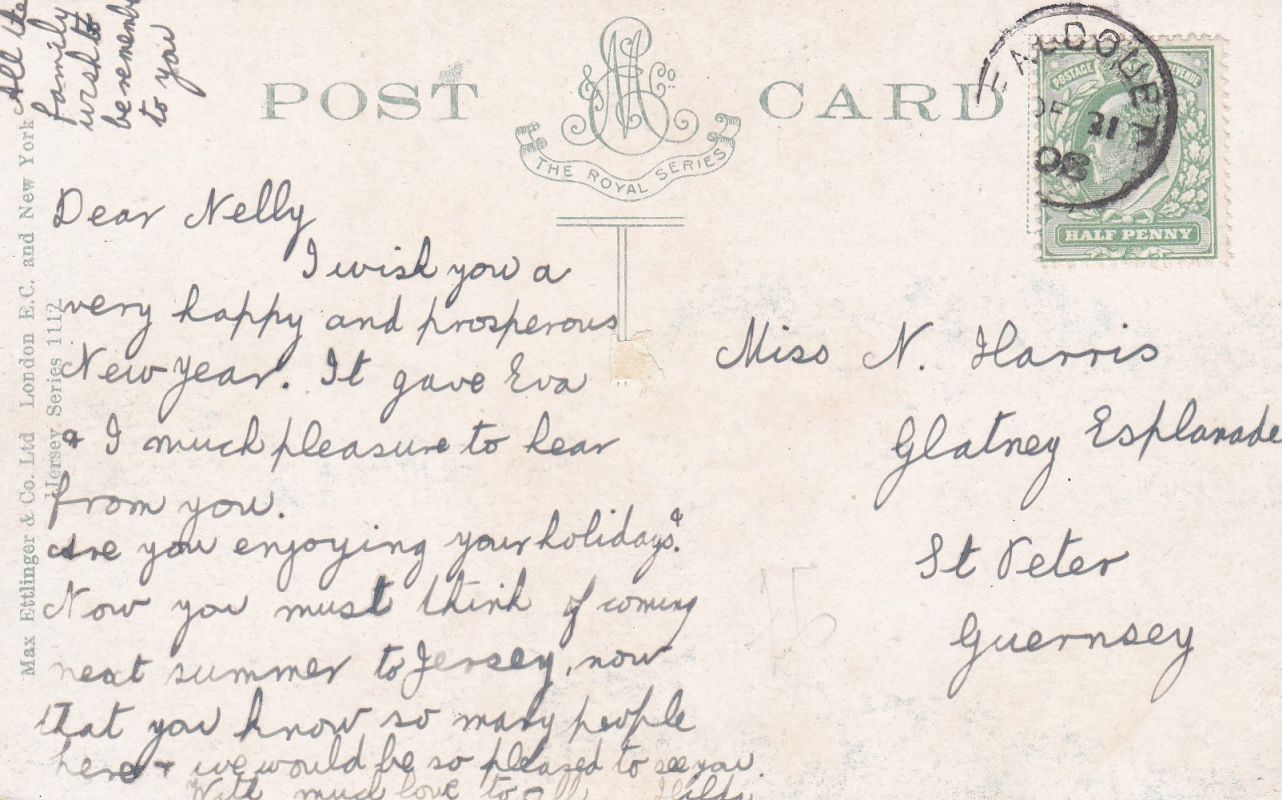 All the
family
wish to
be remembe
to you
POST CARD
THE ROYAL SERIES
FALDOUET
DE 31
08
POSTAGE REVENUE
HALF PENNY
Max Ettlinger & Co. Ltd London E.C. and New York
Jersey Series 1112
Dear Nelly
I wish you a
very happy and prosperous
New Year. It gave Eva
& I much pleasure to hear
from you.
Are you enjoying your holidays?
Now you must think of coming
next summer to Jersey, now
that you know so many people
here & we would be so pleased to see you.
With much love to all Hilda
Miss N. Harris
Glatney Esplanade
St Peter
Guernsey